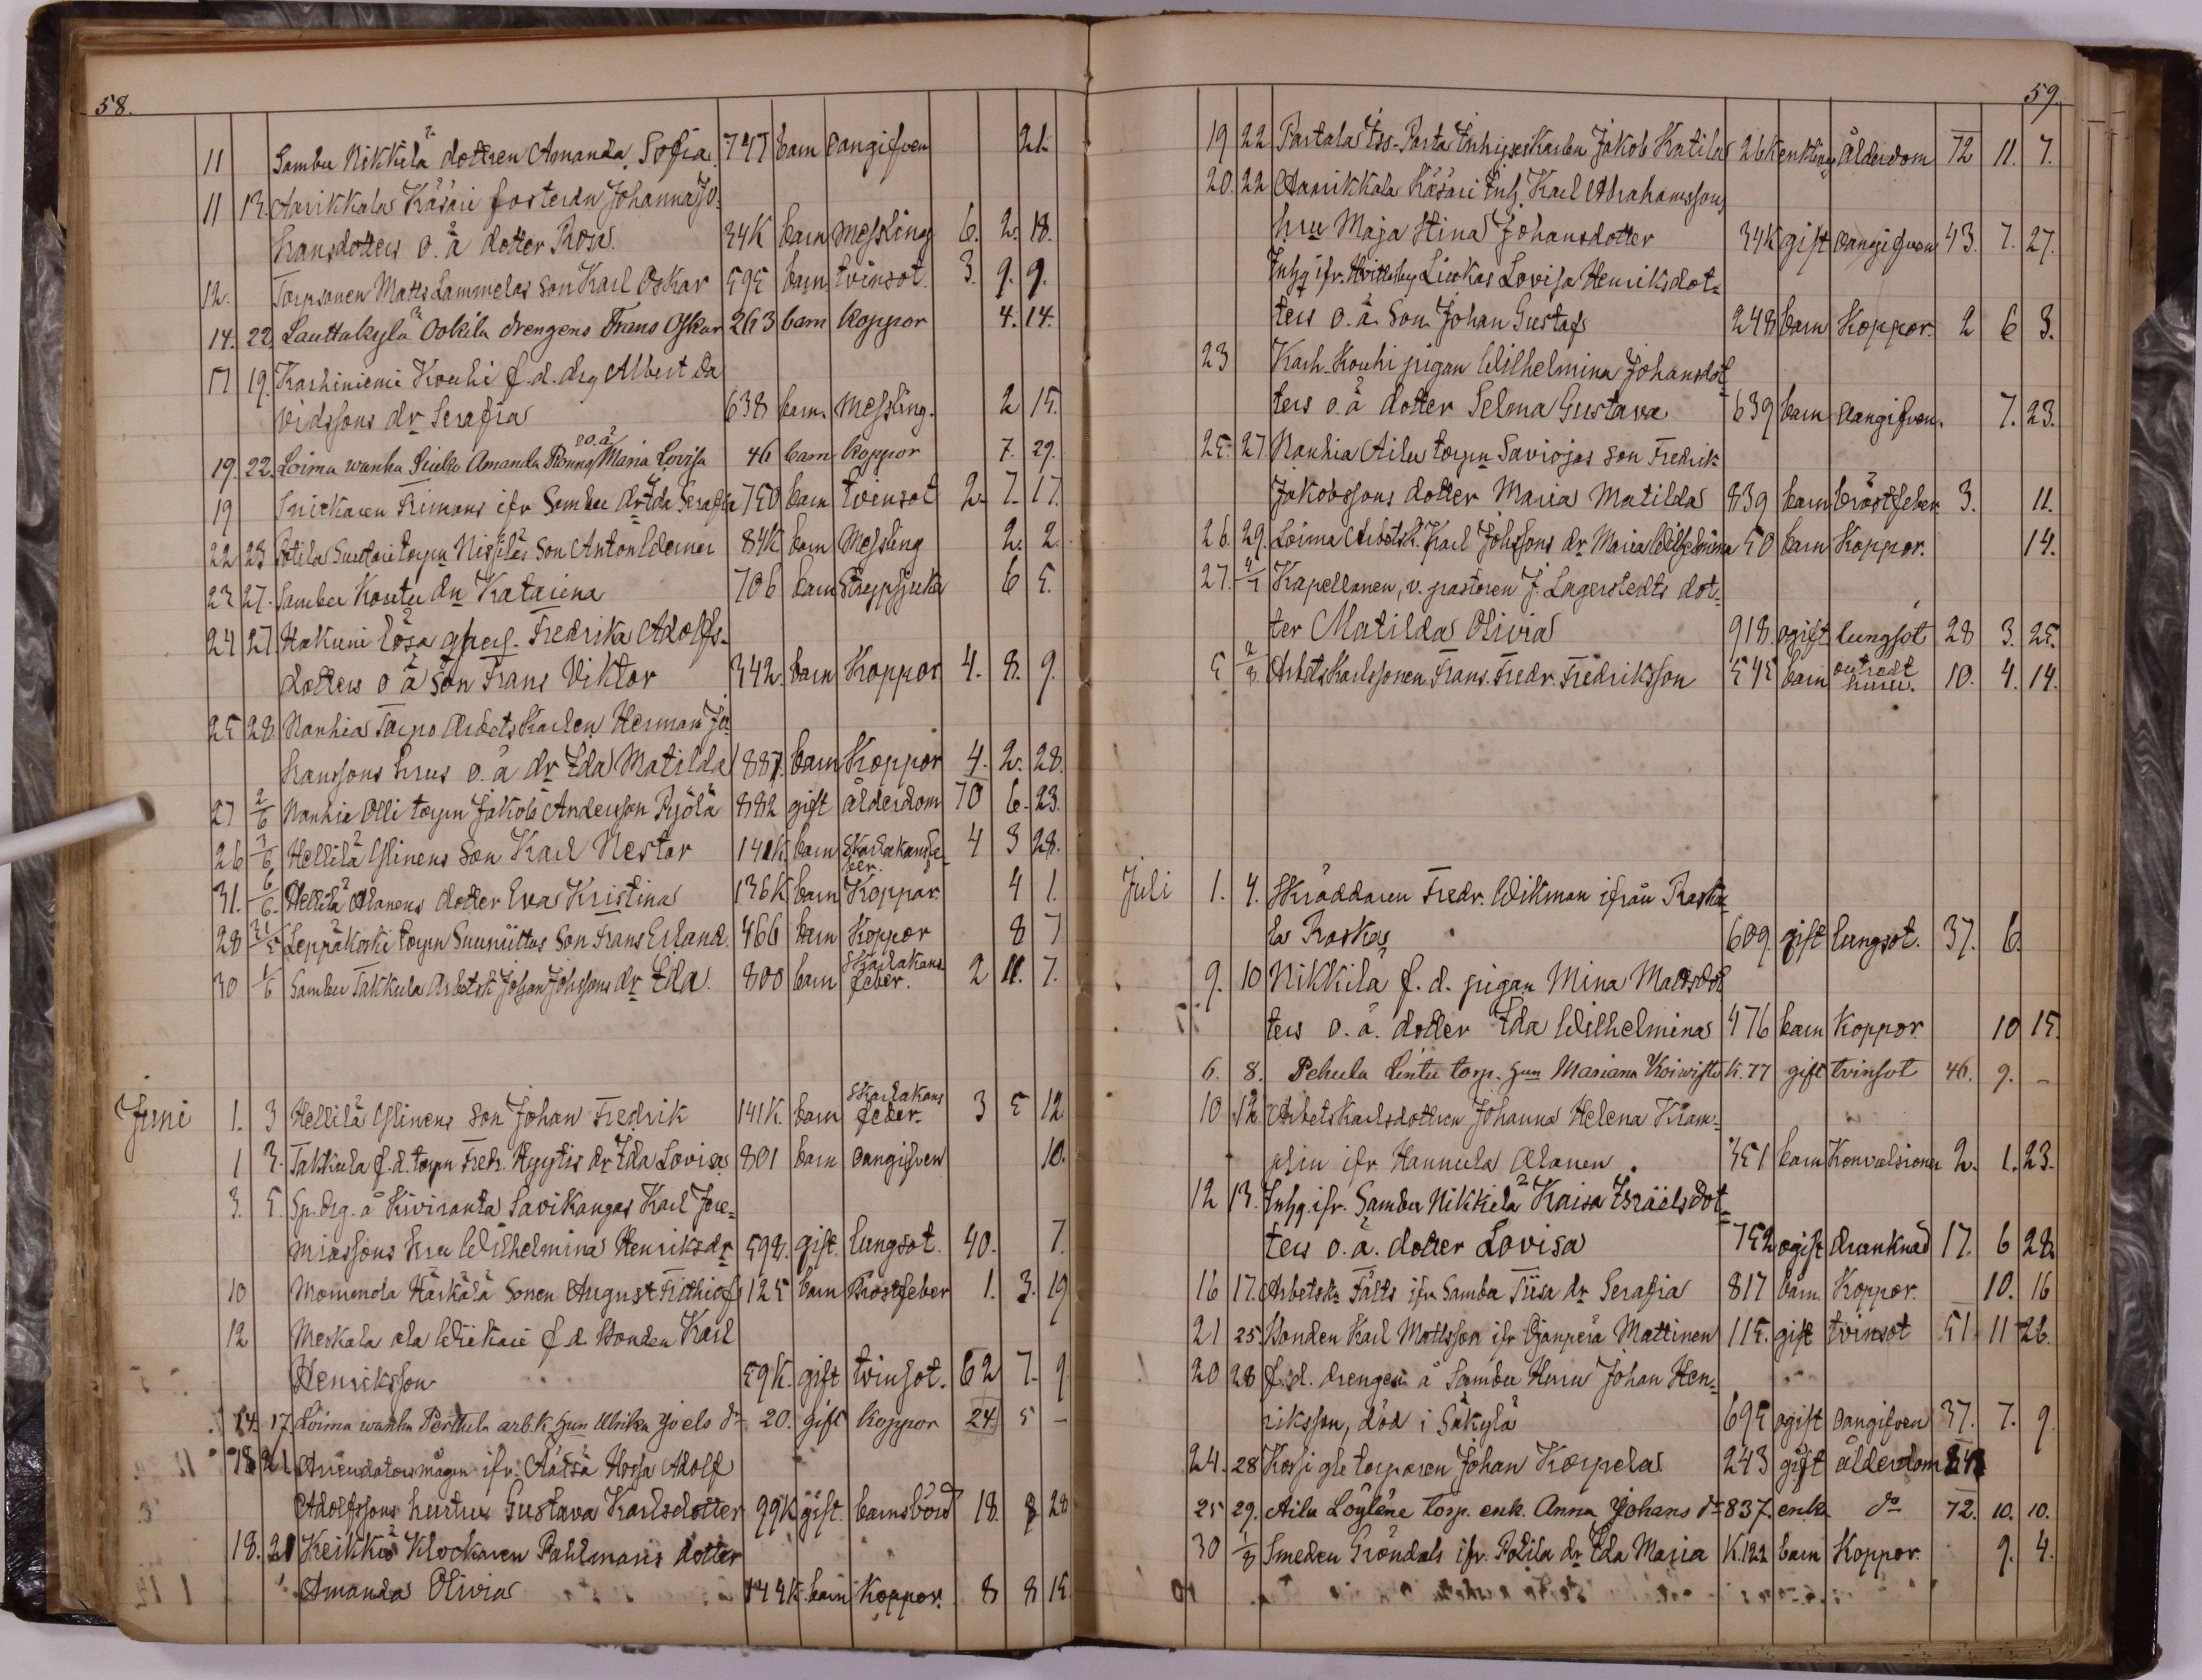 58.
11 Sambu Nikkilä dottren Amanda Sofia. 747 barn oangifven 21.
11 13. Aarikkala Käsäri fosterdn Johanna Jo-
hansdotters o. ä dotter Rosa. 34K barn Messling 6. 2. 18.
12. Torpsonen Matts Lammelas son Karl Oskar 595 barn tvinsot. 3. 9. 9.
14. 22. Lauttakylä Ookila drengens Frans Oskar 263 barn koppor 4. 14.
17 19. Karhiniemi Kouhi f. d. drg Albert Da
vidssons dr Serafia 638 barn Messling. 2 15.
19. 22. Loima wanha Maria Lovisa 46 barn koppor 7. 29.
o. ä
19 Snickaren Frimans ifr Sambu dr Ida Serafia 750 barn tvinsot 2. 7. 17.
22 23 Sotila torpn son Anton 84K barn Messling 2. 2.
23 27. Sambu Koutu dn Katarina 706 barn Strypsjuka 6 5.
24 27 Hakuni lösa qpers. Fredrika Adolfs-
dotters o ä son Frans Viktor 342. barn Koppor 4. 8. 9.
25 28. Nanhia Torpo Arbetskarlen Herman Jo-
hanssons hrus o. ä dr Ida Matilda 887. barn Koppor 4. 2. 28.
27 2/6 Nanhia Olli torpn Jakob Andersson Pyölä 882 gift ålderdom 70 6. 23.
26 3/6 Hellilä Ylinens son Karl Nestor 141K. barn Skarlakansfe-
ber. 4 3 28.
31. 6/6. Hellilä Alanens dotter Eva Kristina 136K barn Koppor. 4 1.
28 31/5 Leppäkoski torpn Suuniittus son Frans Erland. 466 barn Koppor 8 7
30 1/6 Sambu Takkula Arbetsk Johan Johssons dr Ida. 800 barn Skarlakans
feber. 2 11. 7.
Juni 1. 3 Hellilä Ylinens son Johan Fredrik 141K. barn Skarlakans
feber. 3 5 12
1 3. Takkula f. d. torpn Fredr. Hyytis dr Ida Lovisa 801 barn oangifven 10.
3. 5. Sp. drg. å Kiviranta Savikangas Karl Jere-
miassons hru Wilhelmina Henriksdr 592. gift. lungsot. 40. 7.
10 Mommola Härkälä sonen August Frithiof 125 barn Bröstfeber 1. 3. 19
12 Meskala ala Wiikari f. d. bonden Karl
Henriksson 59K. gift tvinsot. 62 7. 9
14. 17. Loima wanha Perttula arb. k. hun Ulrika Joels dr 20. gift koppor 24. 5 –
18 21 Arrendatorsmågen ifr. Hossa Adolf
Adolfssons hustru Gustava Karlsdotter 99K gift. barnsbörd 18. 8 28
18. 21 Keikkis Klockaren Pahlmans dotter
Amanda Olivia 144K. barn Koppor. 8 8 15
59.
19 22 Partala Iss-Parta Inhyseskarlen Jakob Katila 26K enkling ålderdom 72 11. 7.
20. 22 Aarikkala Käsäri Inh. Karl Abrahamssons
hru Maja Stina Johansdotter 34K gift oangifven 43. 7. 27.
Inhg ifr. Lovisa Henriksdot-
ters o. ä. son Johan Gustaf 248 barn Koppor. 2 6 3.
23 Karh. Kouhi pigan Wilhelmina Johansdot-
ters o. ä dotter Selma Gustava 639 barn oangifven. 7. 23.
25. 27. Nanhia Ailu torpn Saviojas son Fredrik
Jakobssons dotter Maria Matilda 839 barn bröstfeber 3. 11.
26. 29. Loima Arbetsk. Karl Johssons dr Maria Wilhelmina 50 barn Koppor. 14.
27. 2/7 Kapellanen, v. pastoren J. Lagerstedts dot-
ter Matilda Olivia 918. ogift lungsot 28 3. 25.
5 2/8. Arbetskarlssonen Frans. Fredr. Fredriksson 545 barn 10. 4. 14.
Juli 1. 4. Skräddaren Fredr. Wikman ifrån Raska-
la Raskas 609. gift lungsot. 37. 6.
9. 10 Nikkilä f. d. pigan Mina Mattsdot
ters o. ä. dotter Ida Wilhelmina 476 barn Koppor. 10 15.
6. 8. Pehula Lintu torp. hun Mariana Koiwisto K. 77 gift tvinsot 46. 9. –
10 12 Arbetskarlsdottren Johanna Helena Kram-
plin ifr Hannula Alanen. 351 barn Konvulsioner 2. 1. 23.
12 13. Inhg. ifr. Sambu Nikkilä Kaisa Israëlsdot-
ters o. ä. dotter Lovisa 752 ogift drunknad 17. 6 28.
16 17. Arbetsk. Fälts ifr Sambu Tiisa dr Serafia 817 barn Koppor. 10. 16
21 25 Bonden Karl Mattsson ifr Ojanperä Mattinen 115. gift tvinsot 51 11 26.
20 28 f. d. drengen å Sambu Huru Johan Hen-
riksson, död i Säkylä 695 ogift oangifven 37. 7. 9
24. 28 torparen Johan Korpela. 243 gift ålderdom 84
25 29. Ailu Löyläne torp. enk. Anna Johans dr 837. enka do 72. 10. 10.
30 1/8 Smeden Gröndals ifr. Potila dr Ida Maria K. 122 barn Koppor. 9. 4.